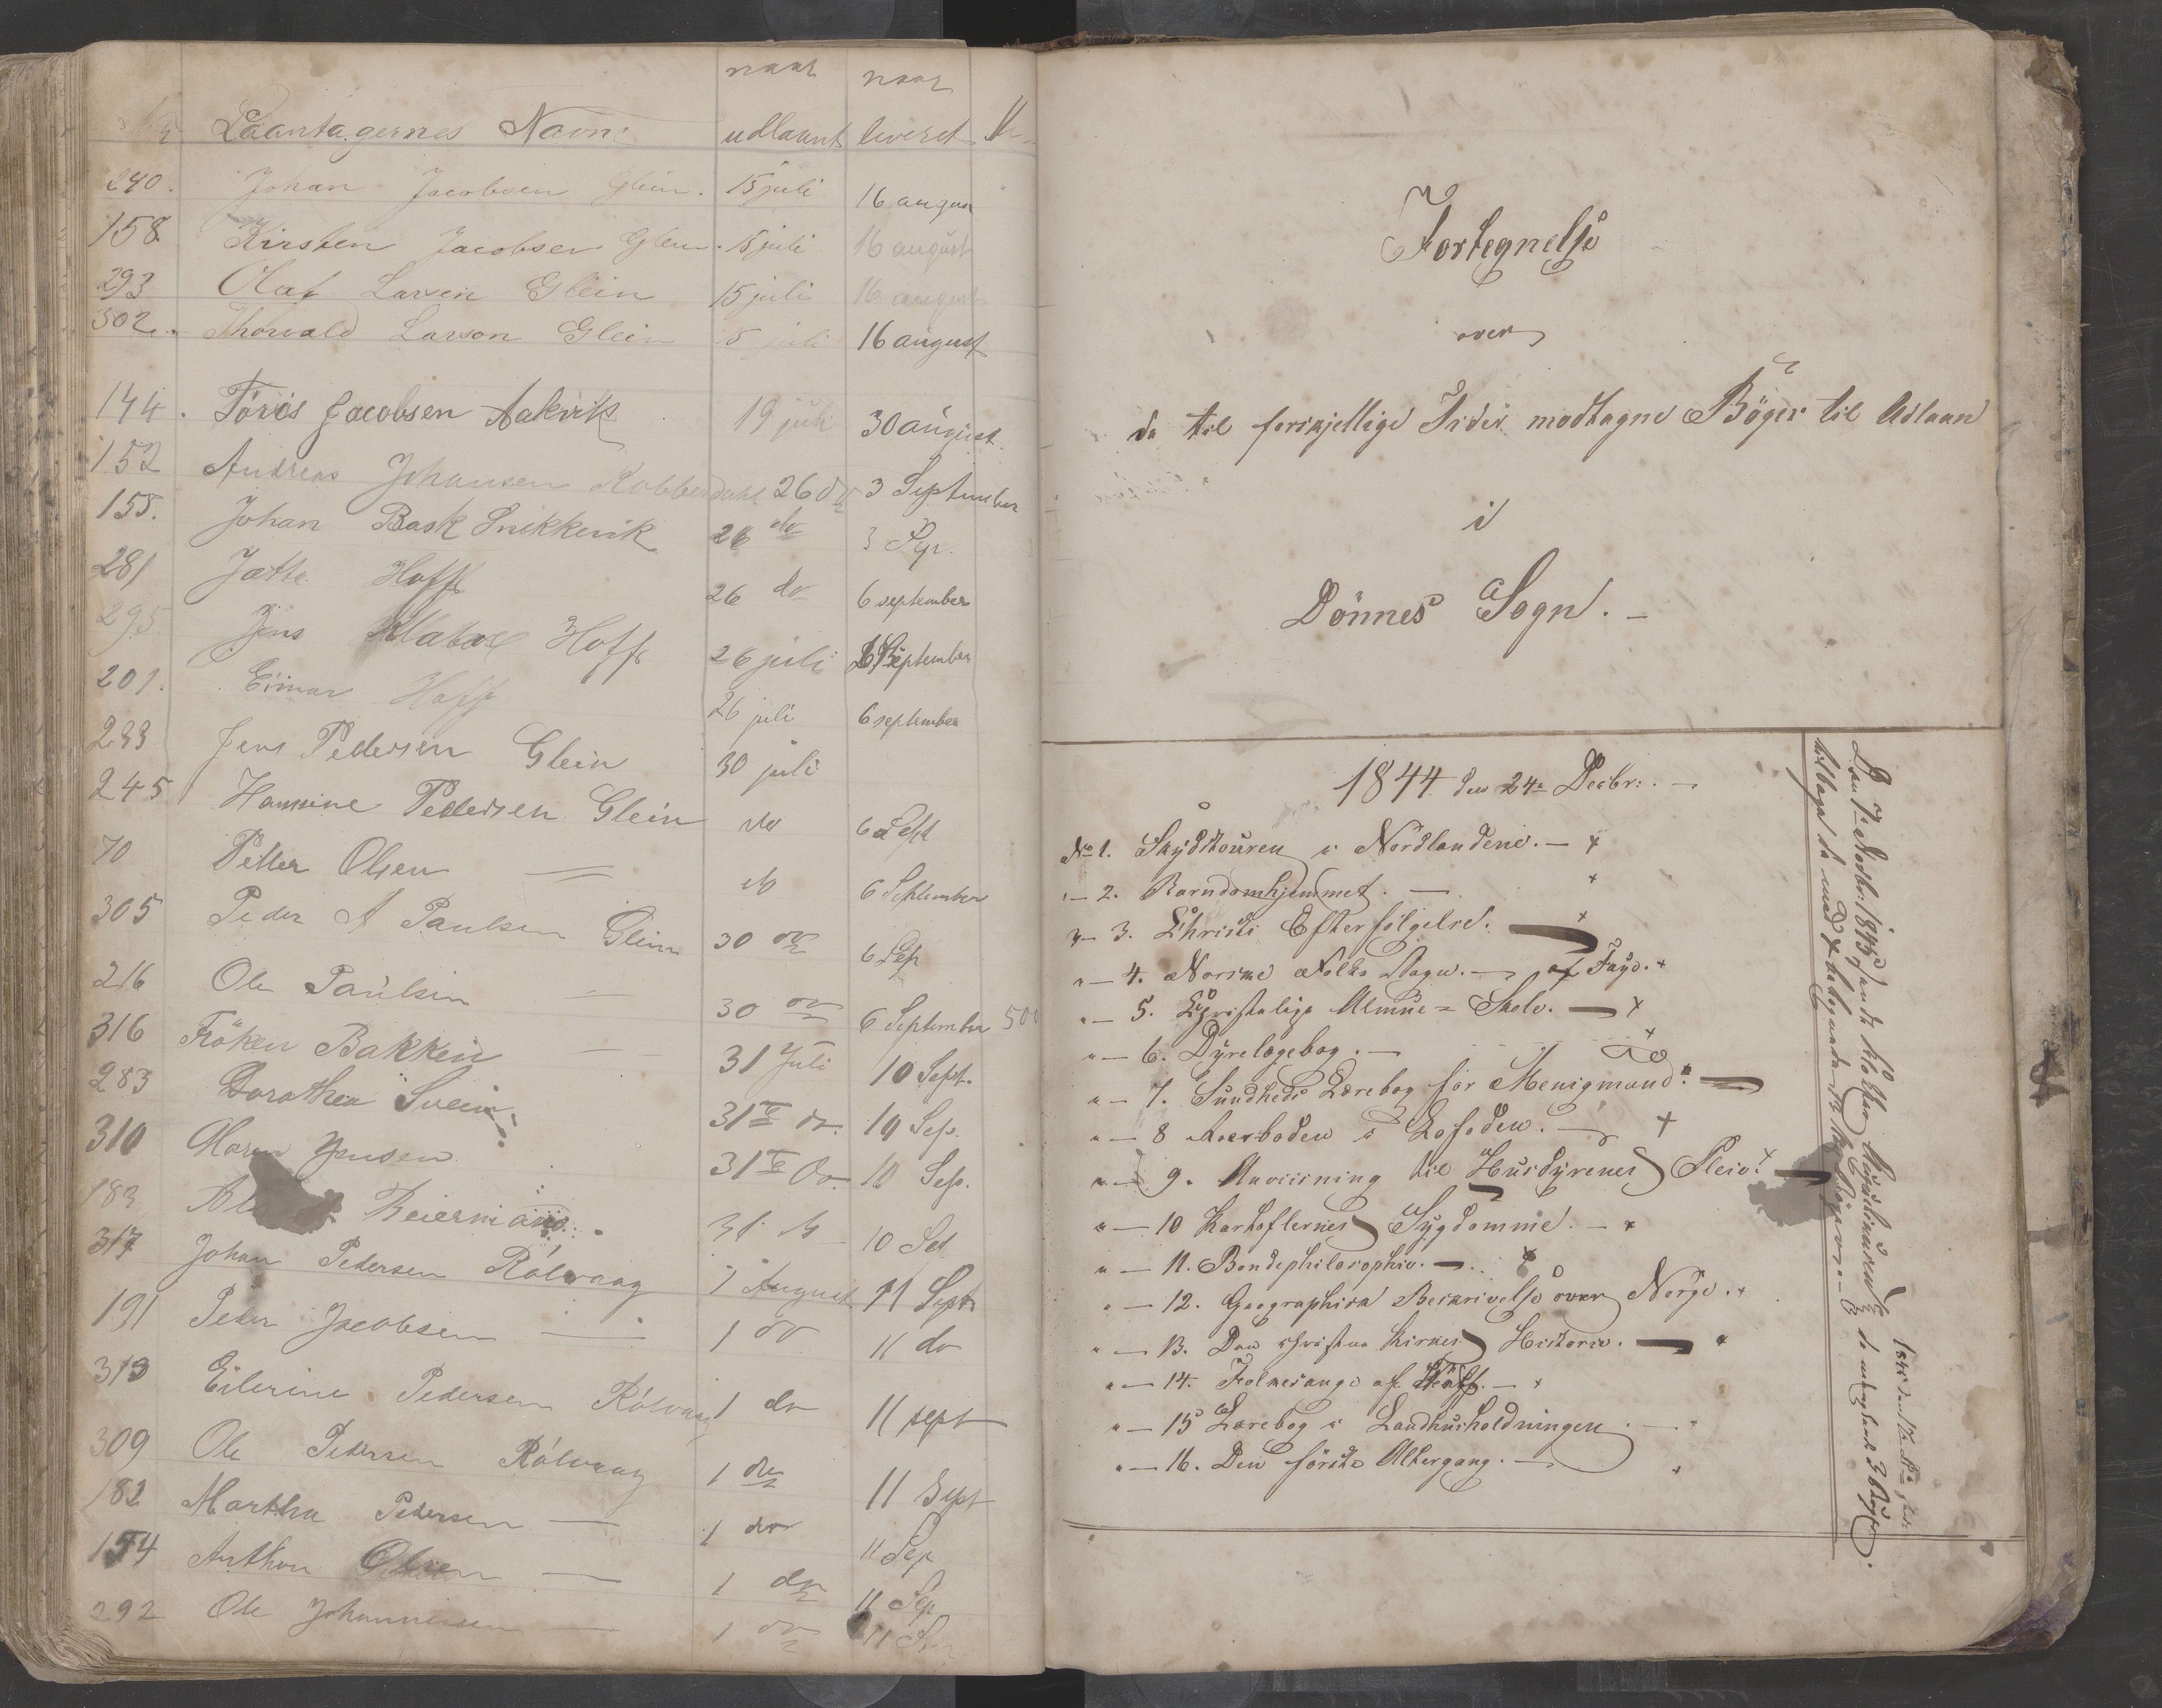 naar naar
Laantagernes Navne udlaant leveret
240. Johan Jacobsen Glein. 15 juli 16 august
158. Kirsten Jacobsen Glein. 15 juli 16 august
293 Olaf Larsen Glein 15 juli 16 august
302. Thorvald Larson Glein 15 juli 16 august
144. Töris Jacobsen Aakvik 19 juli 30 august
152 Andreas Johansen 26 do 3 September
155. Johan Bask Snekkevik 26 do 3 Sep.
281 Jætte Hoff 26 do 6 september
295 Jens Hoff 26 juli September
201. Einar Hoff 26 juli 6 september
233 Jens Pedersen Glein 30 juli
245 Hansine Pedersen Glein do 6 Sept
70 Petter Olsen — do 6 September
305 Peder A Paulsen Glein 30 do 6 Sep
216 Ole Paulsen — 30 do 6 September 50
316 Fröken Bakken — 31 Juli 10 Sept.
283 Dorothea Svein 31te do. 10 Sep.
310 Maren Jensen 31te do. 10 Sep.
183 Beiermann. 31 do 10 Sep
317 Johan Pedersen Rólvaag 1 August 11 Sept
191 Peder Jacobsen — 1 do 11 do
313 Eilerine Pedersen Rólvaag 1 do 11 sept
309 Ole Pedersen Rólvaag 1 do 11 Sept
182 Martha Pedersen — 1 do 11 Sep
154 Anthon Olsen — 1 do 11 Sep
292 Ole Johannesen — 1 do 11 Sep
Fortegnelse
over
de til forskjellige Tider modtagne Böger til Udlaan
i
Dönnes Sogn. –
1844 den 24de Decbr:. –
No 1. Skydstouren i Nordlandene. – +
" – 2. Barndomhjemmet. – +
" – 3. Christi Efterfölgelse. – +
" – 4. Norske Folke Sagn. – af Faye. +
" – 5. Christelige Almue = Skole. – +
" – 6. Dyrelægebog. – +
" – 7. Sundheds Lærebog for Menigmand. –
" – 8 Roerboden i Lofoden. – +
" – 9. Anviisning til Huusdyrenes Pleie. + –
" – 10 Kartoflernes Sygdomme. – +
" – 11. Bondephilosophie. – +
" – 12. Geographisk Beskrivelse over Norge. +
" – 13. Den christne Kirkes Historie. – +
" – 14. Folkesange af – +
" – 15 Lærebog i Landhusholdningen. –
" – 16. Den förste Altergang. – +